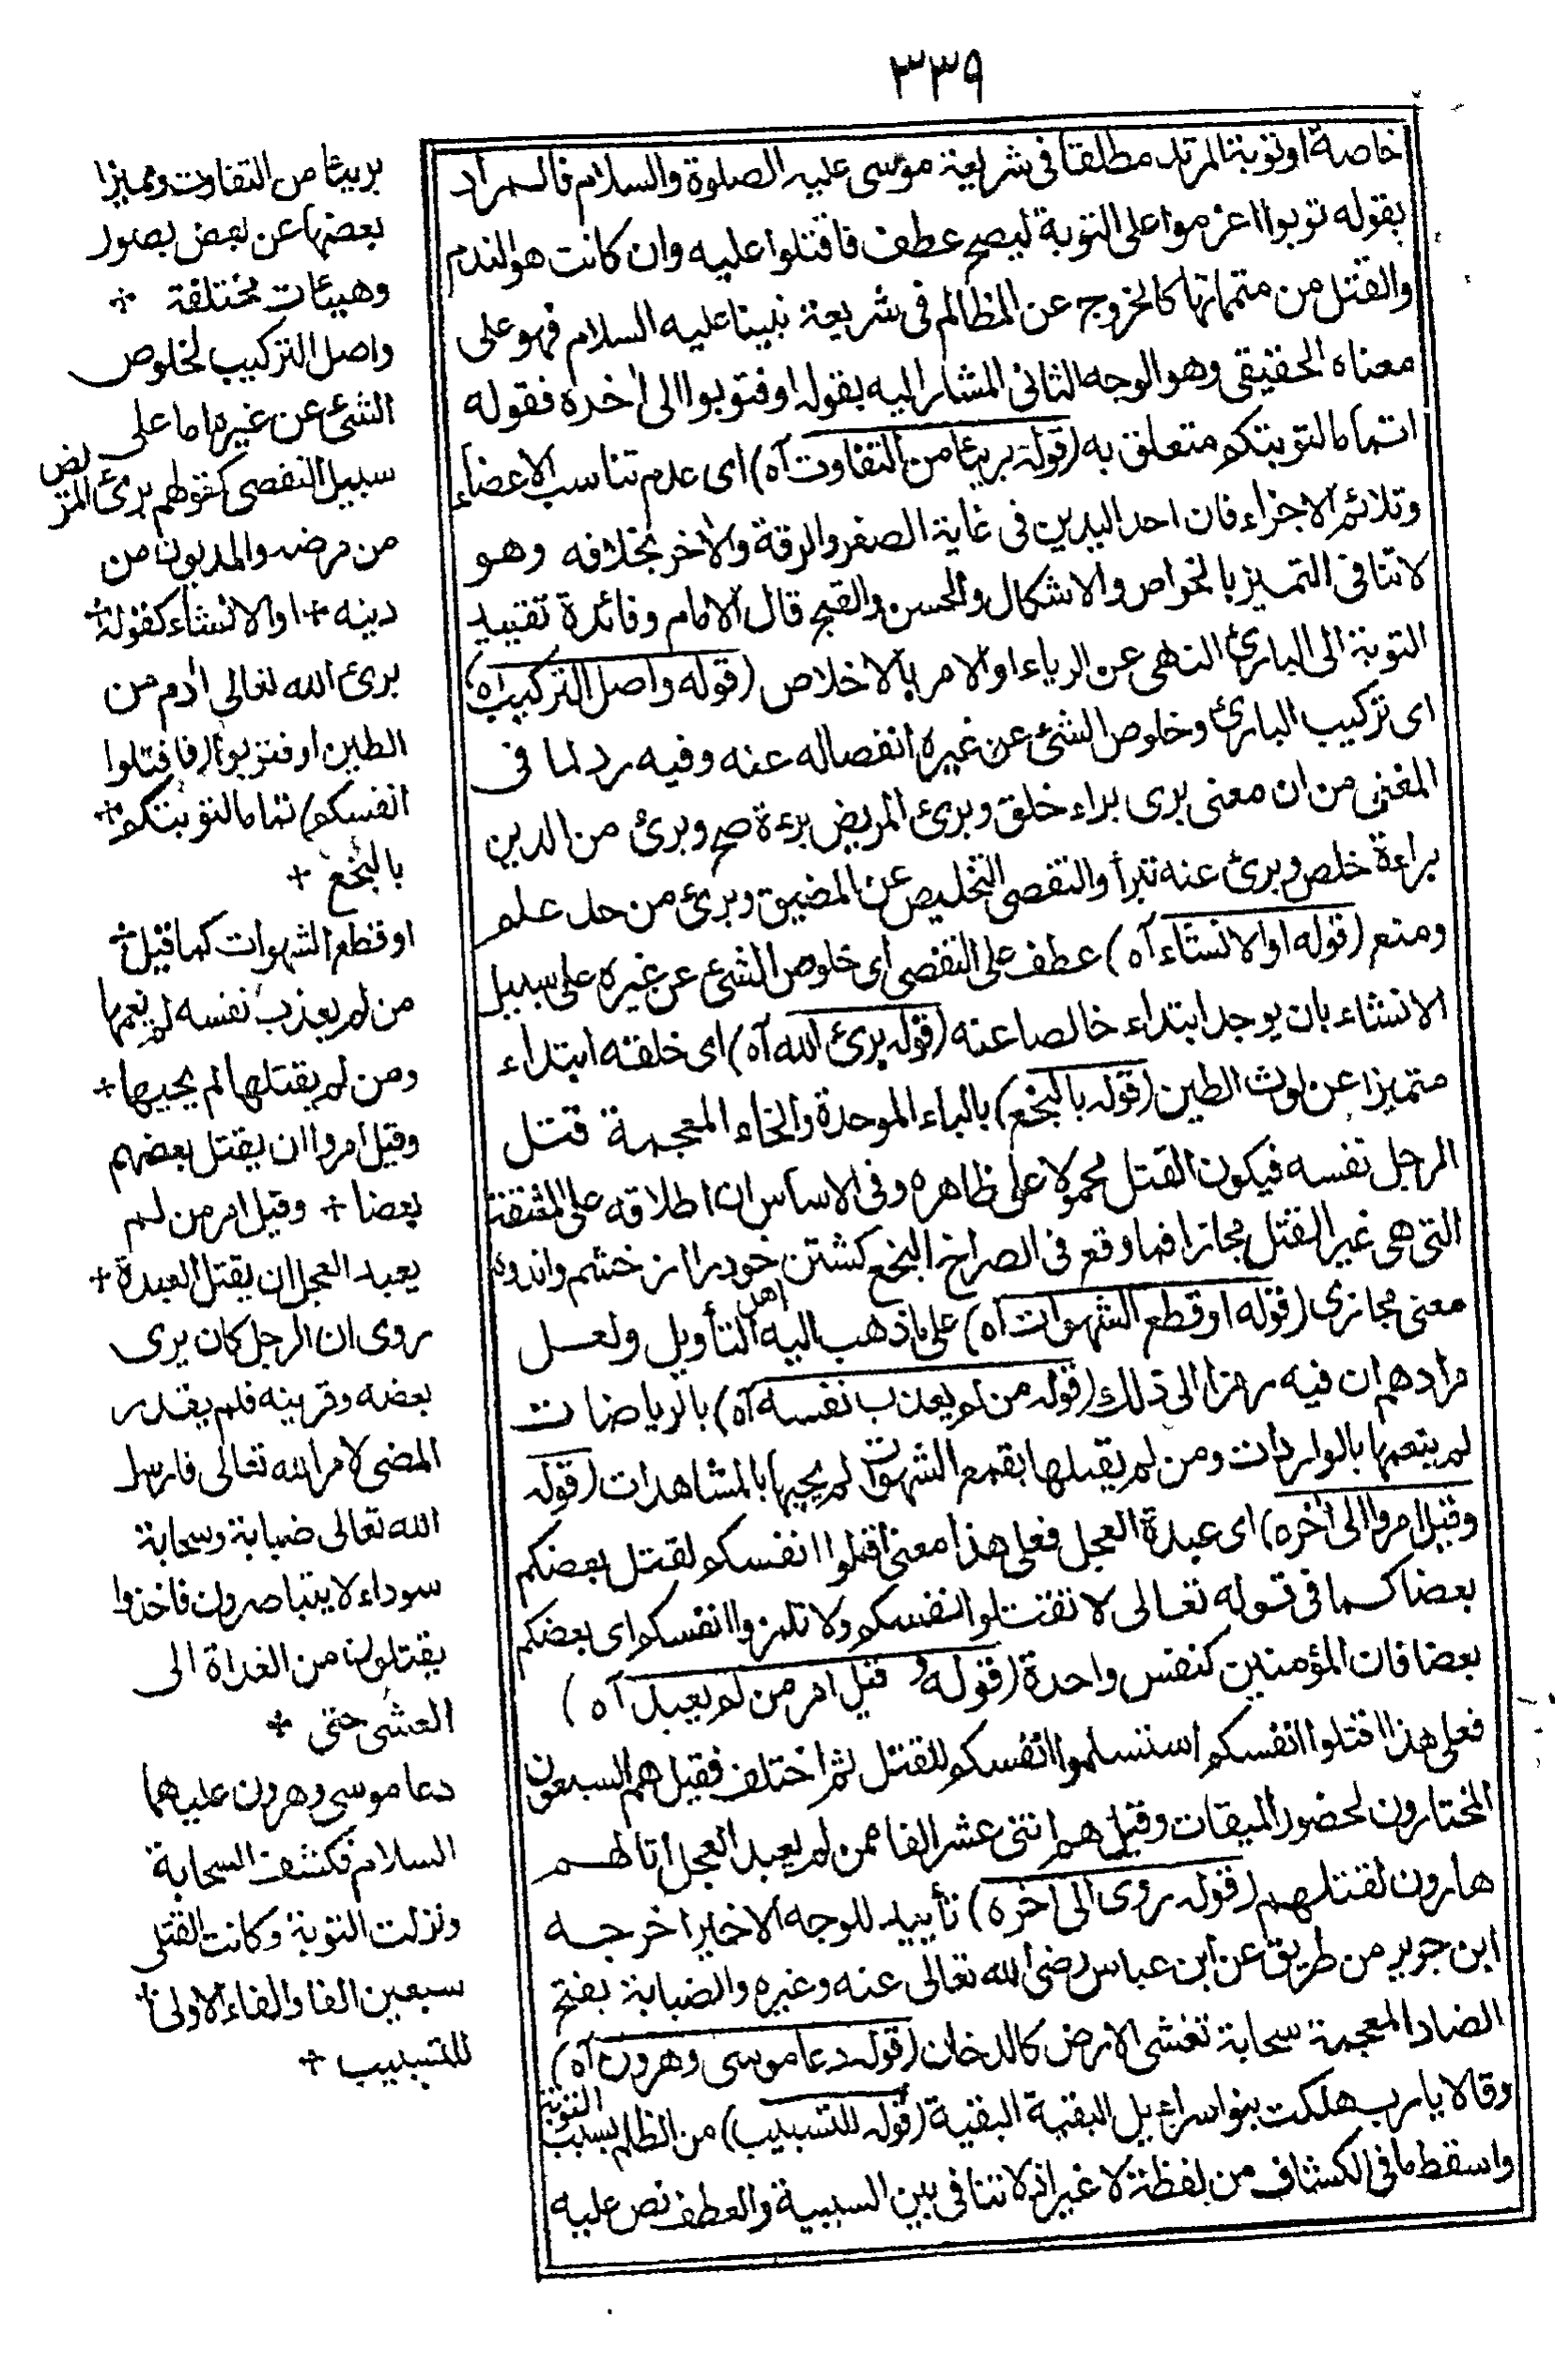 ٣٣٩
خاصة او توبة المرتد مطلقا فى شريعة موسى عليه الصلوة والسلام فالمراد
بقوله توبوا اعزموا على التوبة ليصح عطف فاقتلوا عليه وان كانت هو الندم
والقتل من متمماتها كالخروج عن المظالم فى شريعة نبينا عليه السلام فهو على
معناه الحقيقى وهو الوجه الثانى المشار اليه بقوله او فتوبوا الى اخره فقوله
اتماما لتوبتكم متعلق به (قوله بريئا من التفاوت آه) اى عدم تناسب الاعضاء
وتلائم الاجزاء فان احد اليدين فى غاية الصغر والرقة والاخر بخلافه وهو
لا تنافى التميز بالخواص والاشكال والحسن والقبح قال الامام وفائدة تقييد
التوبة الى البارئ النهى عن الرياء او الامر بالاخلاص (قوله واصل التركيب آه)
اى تركيب البارئ وخلوص الشئ عن غيره انفصاله عنه وفيه رد لما فى
المغنى من ان معنى برى براء خلق وبرئ المريض برءة صح وبرئ من الدين
براءة خلص وبرئ عنه تبرأ والتفصى التخليص عن المضيق وبرئ من حد علم
ومنع (قوله او الانشاء آه) عطف على التفصى اى خلوص الشئ عن غيره على سبيل
الانشاء بان يوجد ابتداء خالصا عنه (قوله برئ الله آه) اى خلقته ابتداء
متميزا عن لوث الطين (قوله بالبخع) بالباء الموحدة والخاء المعجمة قتل
الرجل نفسه فيكون القتل محمولا على ظاهره وفى الاساس ان اطلاقه على المشقة
التى هى غير القتل مجاز افما وقع فى الصراح البخع كشتن خود را از خشم واندوه
معنى مجازى (قوله او قطع الشهوات آه) على ما ذهب اليه اهل التأويل ولعل
مرادهم ان فيه رمزا الى ذلك (قوله من لم يعذب نفسه آه) بالرياضات
لم ينعمها بالواردات ومن لم يقبلها بقمع الشهوات لم يحيها بالمشاهدات (قوله
وقيل امروا الى اخره) اى عبدة العجل فعلى هذا معنى اقتلوا انفسكم لقتل بعضكم
بعضا كما فى قوله تعالى لا تقتلوا انفسكم ولا تلمزوا انفسكم اى بعضكم
بعضا فان المؤمنين كنفس واحدة (قوله و قيل امر من لم يعبد آه)
فعلى هذا اقتلوا انفسكم استسلموا انفسكم للقتل ثم اختلف فقيل هم السبعون
المختارون لحضور الميقات وقيل هم اثنى عشر الفا ممن لم يعبد العجل اتا لهم
هارون لقتلهم (قوله روى الى اخره) تأييد للوجه الاخير اخرجه
ابن جرير من طريق عن ابن عباس رضى الله تعالى عنه وغيره والضبابة بفتح
الضاد المعجمة سحابة تغشى الارض كالدخان (قوله دعا موسى وهرون آه)
وقالا يا رب هلكت بنو اسرائيل البقية البقية (قوله للتسبيب) من الظلم بسبب التوبة
واسقط ما فى الكشاف من لفظة لا غير اذ لا تنافى بين السببية والعطف نص عليه
بريئا من التفاوت ومميزا
بعضها عن بعض بصور
وهيئات مختلفة +
واصل التركيب لخلوص
الشئ عن غيره اما على
سبيل التفصى كقولهم برئ المريض
من مرضه والمديون من
دينه + او الانشاء كقوله +
برئ الله تعالى ادم من
الطين او فتوبوا (فاقتلوا
انفسكم) تماما لتوبتكم +
بالبخع +
او قطع الشهوات كما قيل +
من لم يعذب نفسه لم ينعمها
ومن لم يقتلها لم يحييها +
وقيل امروا ان يقتل بعضهم
بعضا + وقيل امر من لم
يعبد العجل ان يقتل العبدة +
روى ان الرجل كان يرى
بعضه وقرينه فلم يقدر
المضى لامر الله تعالى فارسل
الله تعالى ضبابة وسحابة
سوداء لا يتباصرون فاخذوا
يقتلون من الغداة الى
العشى حتى +
دعا موسى وهرون عليهما
السلام فكشف السحابة
ونزلت التوبة وكانت القتلى
سبعين الفا والفاء الاولى +
للتسبيب +